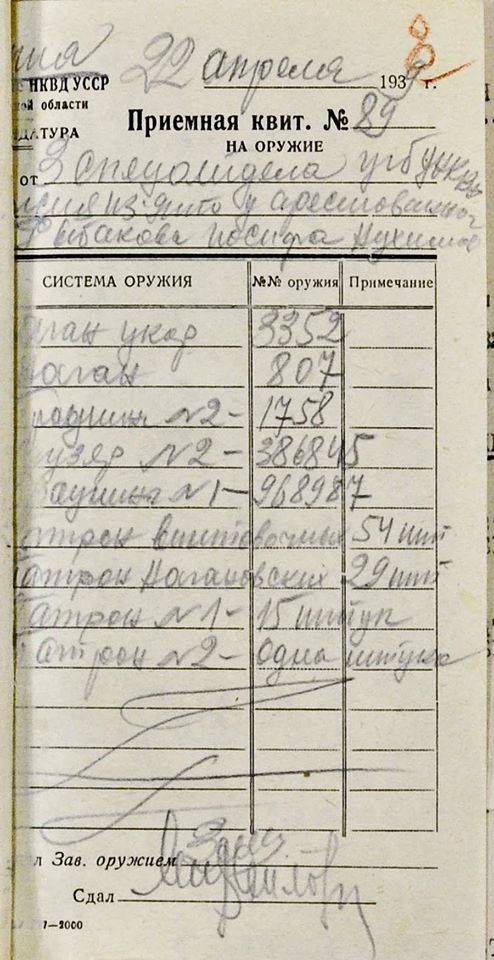 8
22 апреля 1939 г.
НКВД УССР
ой области
ДАТУРА
Приемная квит. № 89
НА ОРУЖИЕ
от 3 спецотдела УГБ УНКВД
изъято у арестованного
Рыбакова Иосифа
СИСТЕМА ОРУЖИЯ №№ оружия Примечание
ган укор 3352
наган 807
браунинг №2- 1758
узер №2- 386845
браунинг №1- 968987
атрон винтовочных 54 шт
Патрон Нагановских 29 шт
Патрон №1- 15 штук
Патрон №2- одна штука
л Зав. оружием
Сдал
7—2000